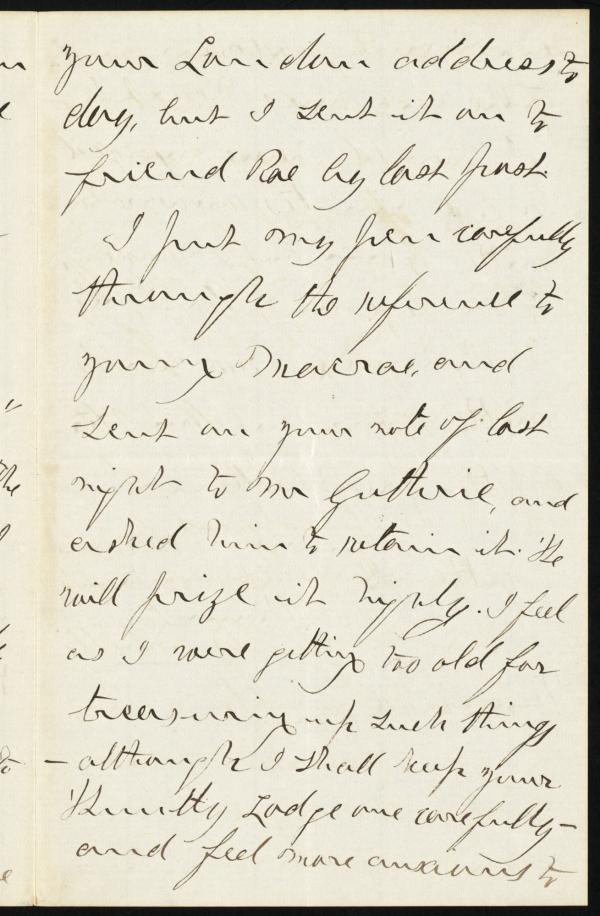 your London address to
day, but I sent it on to
friend Rae by last post.
I put my pen carefully
through the reference to
young Macrae, and
sent on your note of last
night to Mr Guthrie, and
asked him to retain it. He
will prize it highly. I feel
as I were getting too old for
treasuring up such things
— although I shall keep your
Lodge one carefully —
and feel more anxious to